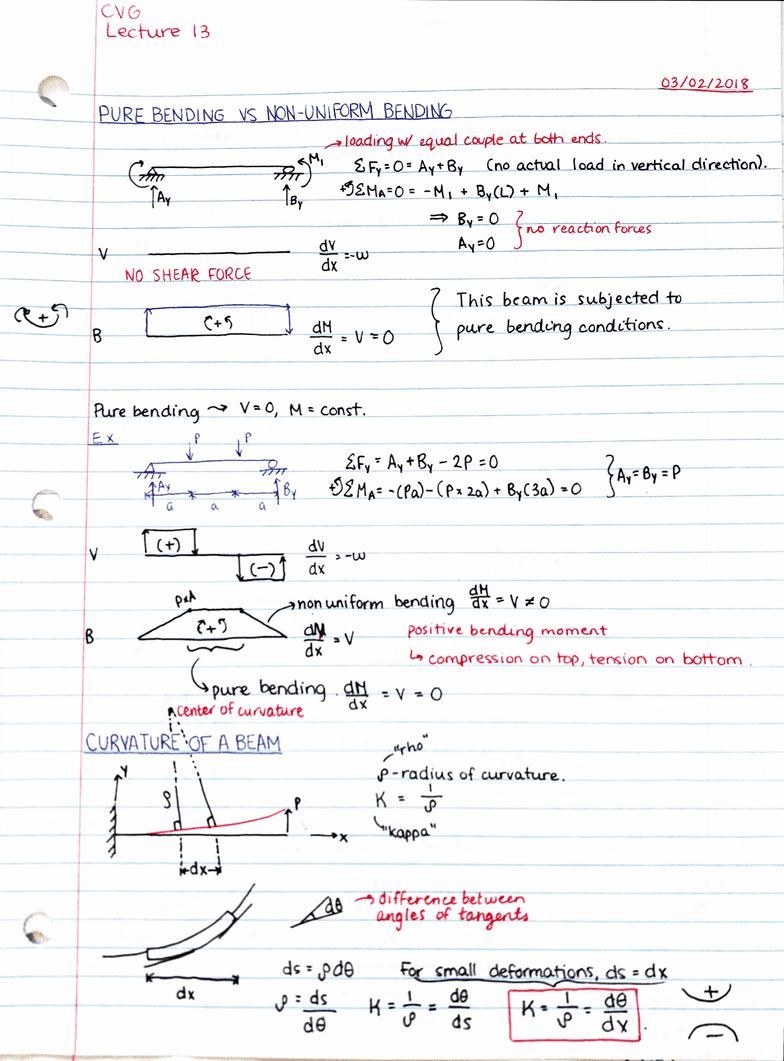 CVG
Lecture 13
03/02/2018
PURE BENDING VS NON-UNIFORM BENDING
→ loading w/ equal couple at both ends.
M₁
ΣFy = 0 = Ay + By (no actual load in vertical direction).
Ay
By
+↺ΣMA = 0 = -M₁ + By(L) + M₁
⇒ By = 0
Ay = 0
} no reaction forces
V
dV/dx = -w
NO SHEAR FORCE
(+)
B
(+)
dM/dx = V = 0
{ This beam is subjected to
pure bending conditions.
Pure bending → V = 0, M = const.
Ex
P
P
Ay
By
a
a
a
ΣFy = Ay + By - 2P = 0
+↺ΣMA = -(Pa) - (P × 2a) + By(3a) = 0
} Ay = By = P
V
(+)
(-)
dV/dx = -w
PxA
→ non uniform bending dM/dx = V ≠ 0
B
(+)
dM/dx = V
positive bending moment
↳ compression on top, tension on bottom.
↳ pure bending. dM/dx = V = 0
center of curvature
CURVATURE OF A BEAM
y
ρ
P
x
dx
"rho"
ρ - radius of curvature.
K = 1/ρ
"kappa"
dθ
→ difference between
angles of tangents
dx
ds = ρdθ
For small deformations, ds = dx
ρ = ds/dθ
K = 1/ρ = dθ/ds
K = 1/ρ = dθ/dx.
+
−